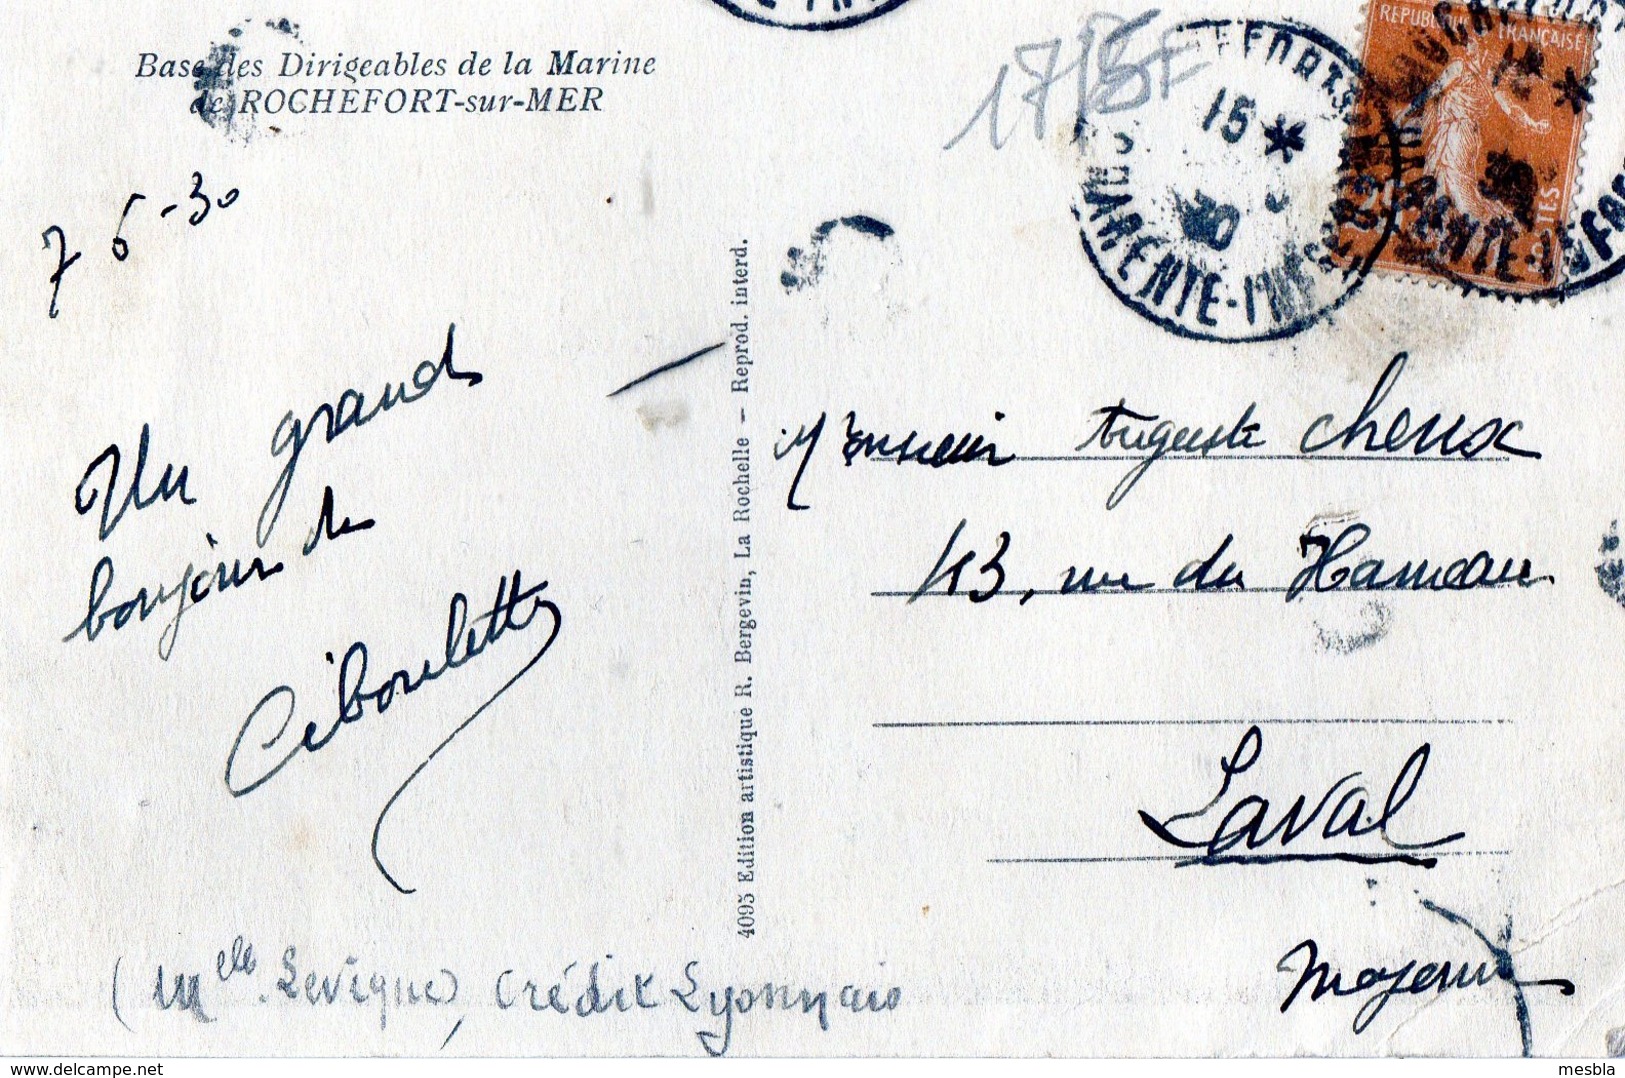 Base des Dirigeables de la Marine
de ROCHEFORT-sur-MER
7 6-30
Un grand
bonjour de
Ciboulette
(Melle Levigne), Crédit Lyonnais
4095 Edition artistique R. Bergevin, La Rochelle - Reprod. interd.
175F
15 *
30
CHARENTE-INFRE
REPUBLIQUE FRANÇAISE
POSTES
Monsieur Auguste Cheux
43, rue du Hameau
Laval
Mayenne
delcampe.net
mesbla